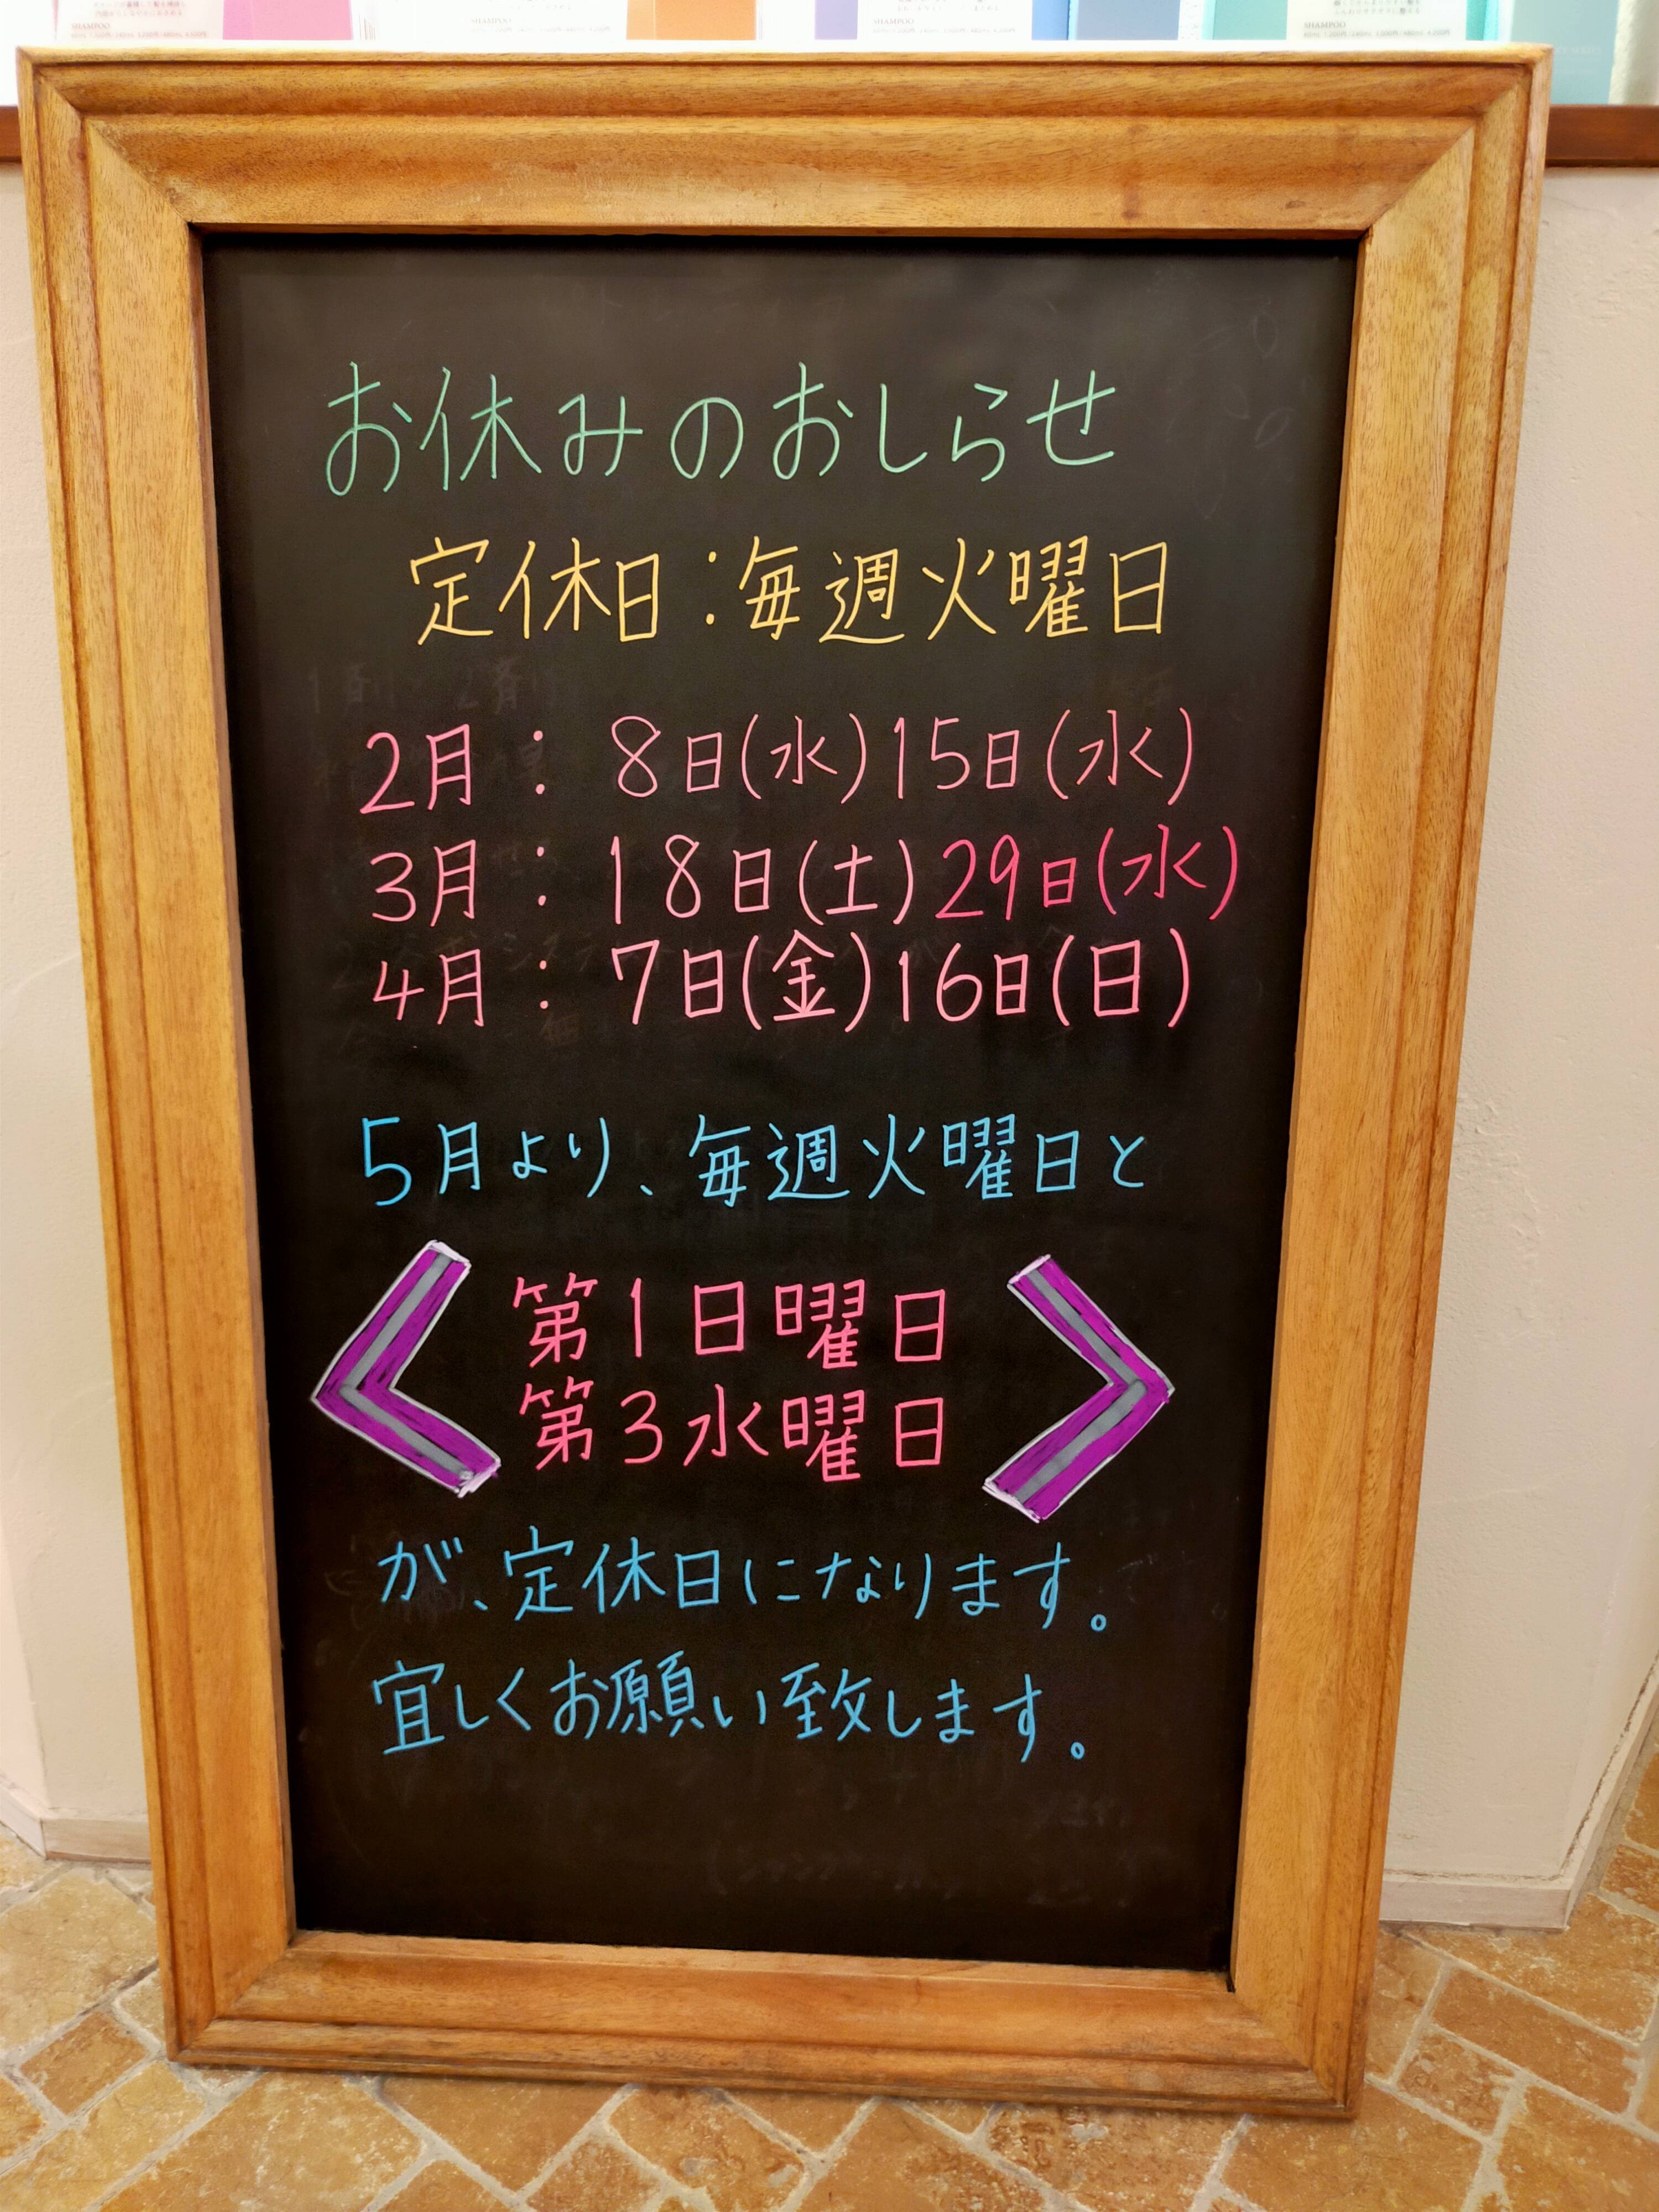 SHAMPOO
SHAMPOO
SHAMPOO
SHAMPOO
お休みのおしらせ
定休日：毎週火曜日
2月： 8日(水)15日(水)
3月： 18日(土)29日(水)
4月： 7日(金)16日(日)
5月より、毎週火曜日と
第1日曜日
第3水曜日
が、定休日になります。
宜しくお願い致します。